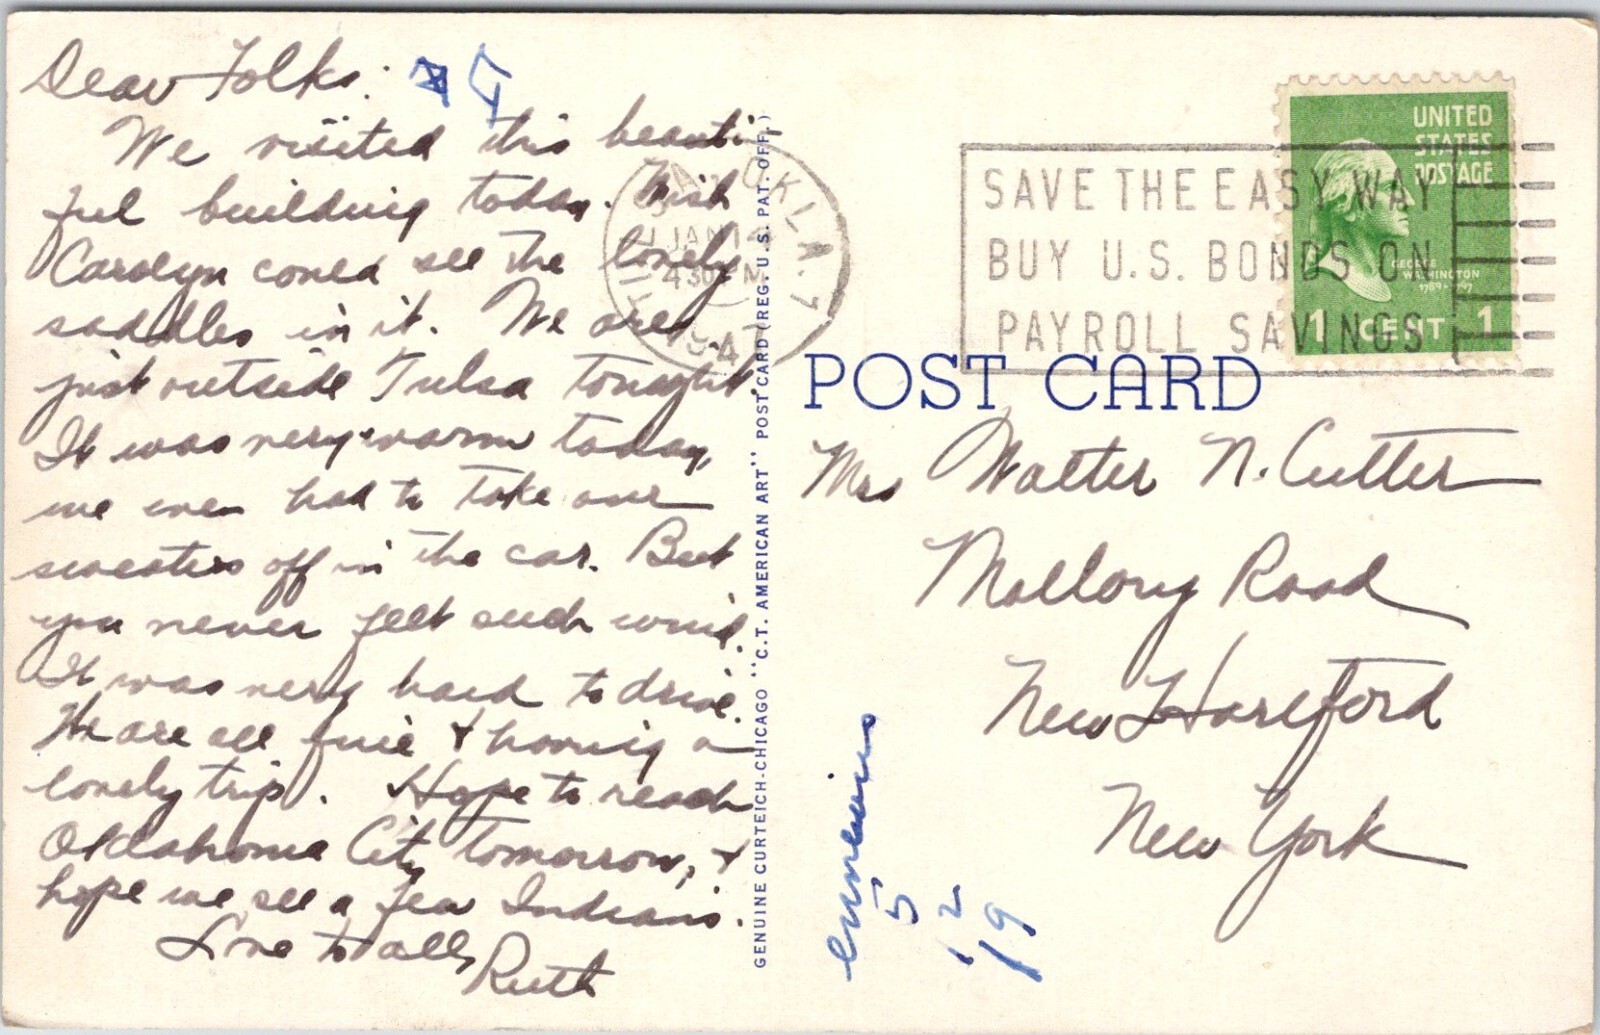 Dear Folks:
We visited this beauti-
ful building today. Wish
Carolyn could see the lovely
saddles in it. We are
just outside Tulsa tonight.
It was very warm today,
we even had to take our
sweaters off in the car. But
you never felt such wind.
It was very hard to drive.
We are all fine & having a
lovely trip. Hope to reach
Oklahoma City tomorrow, &
hope we see a few Indians.
Love to all,
Ruth
GENUINE CURTEICH-CHICAGO "C.T. AMERICAN ART" POST CARD (REG. U.S. PAT. OFF.)
OKLA.
JAN 14
4 30 PM
1947
SAVE THE EASY WAY
BUY U.S. BONDS ON
PAYROLL SAVINGS
UNITED
STATES
POSTAGE
GEORGE
WASHINGTON
1789-1797
1 CENT 1
POST CARD
Mrs Walter N. Cutter
Mallory Road
New Hartford
New York
5
2
19